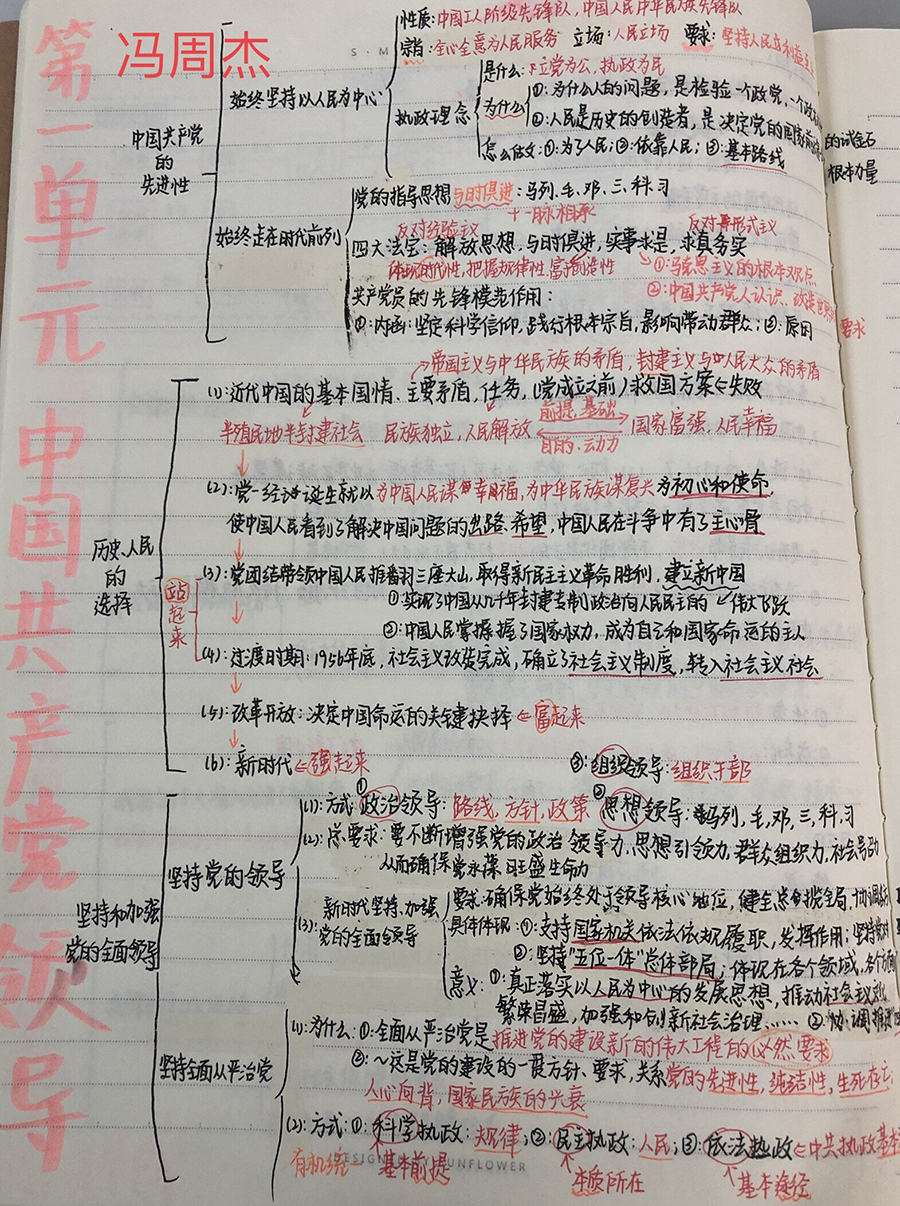 第一单元 中国共产党领导
冯周杰
中国共产党的先进性
始终坚持以人民为中心
性质:中国工人阶级先锋队,中国人民中华民族先锋队
宗旨:全心全意为人民服务 立场:人民立场 要求:坚持人民立利益至
执政理念
是什么:立党为公,执政为民
为什么
①:为什么人的问题,是检验一个政党,一个政
的试金石
②:人民是历史的创造者,是决定党的国家前途
根本力量
怎么做:①:为了人民;②:依靠人民;③:基本路线
始终走在时代前列
党的指导思想与时俱进:马列、毛、邓、三、科、习
一脉相承
反对经验主义
反对形式主义
四大法宝:解放思想,与时俱进,实事求是,求真务实
体现时代性,把握规律性,富创造性
①:马克思主义的根本观点
②:中国共产党人认识、改造世界
要求
共产党员的先锋模范作用:
①:内涵:坚定科学信仰,践行根本宗旨,影响带动群众;②:原因
历史、人民的选择
帝国主义与中华民族的矛盾,封建主义与人民大众的矛盾
(1):近代中国的基本国情、主要矛盾,任务,(党成立又前)救国方案⇐失败
半殖民地半封建社会 民族独立,人民解放 前提,基础 国家富强,人民幸福
目的、动力
(2):党一经诞生就以为中国人民谋幸福,为中华民族谋复兴为初心和使命,
使中国人民看到了解决中国问题的出路、希望,中国人民在斗争中有了主心骨
(3):党团结带领中国人民推翻三座大山,取得新民主主义革命胜利,建立新中国
①实现了中国从几千年封建专制政治向人民民主的伟大飞跃
站起来
②:中国人民掌握了国家权力,成为自己和国家命运的主人
(4):过渡时期:1956年底,社会主义改造完成,确立了社会主义制度,转入社会主义社会
(5):改革开放:决定中国命运的关键抉择⇐富起来
(6):新时代⇐强起来
坚持和加强党的全面领导
坚持党的领导
③:组织领导:组织干部
(1):方式:①政治领导:路线,方针,政策 ②思想领导:马列,毛,邓,三,科,习
(2):总要求:要不断增强党的政治领导力,思想引领力,群众组织力,社会号召
从而确保党永葆旺盛生命力
(3):新时代坚持、加强党的全面领导
要求:确保党始终处于领导核心地位,健全总揽全局,协调各
具体体现:①:支持国家机关依法依规履职,发挥作用;坚持党对
②:坚持"五位一体"总体部局,体现在各个领域,各个方面
意义:①:真正落实以人民为中心的发展思想,推动社会主义
繁荣昌盛,加强和创新社会治理…… ②协调推进
坚持全面从严治党
(1):为什么:①:全面从严治党是推进党的建设新的伟大工程的必然要求
②:~这是党的建设的一贯方针、要求,关系党的先进性,纯洁性,生死存亡,
人心向背,国家民族的兴衰
(2):方式:①:科学执政:规律;②:民主执政:人民;③:依法执政⇐中共执政基本
有机统一 基本前提
本质所在
基本途径
DESIGN
UNFLOWER